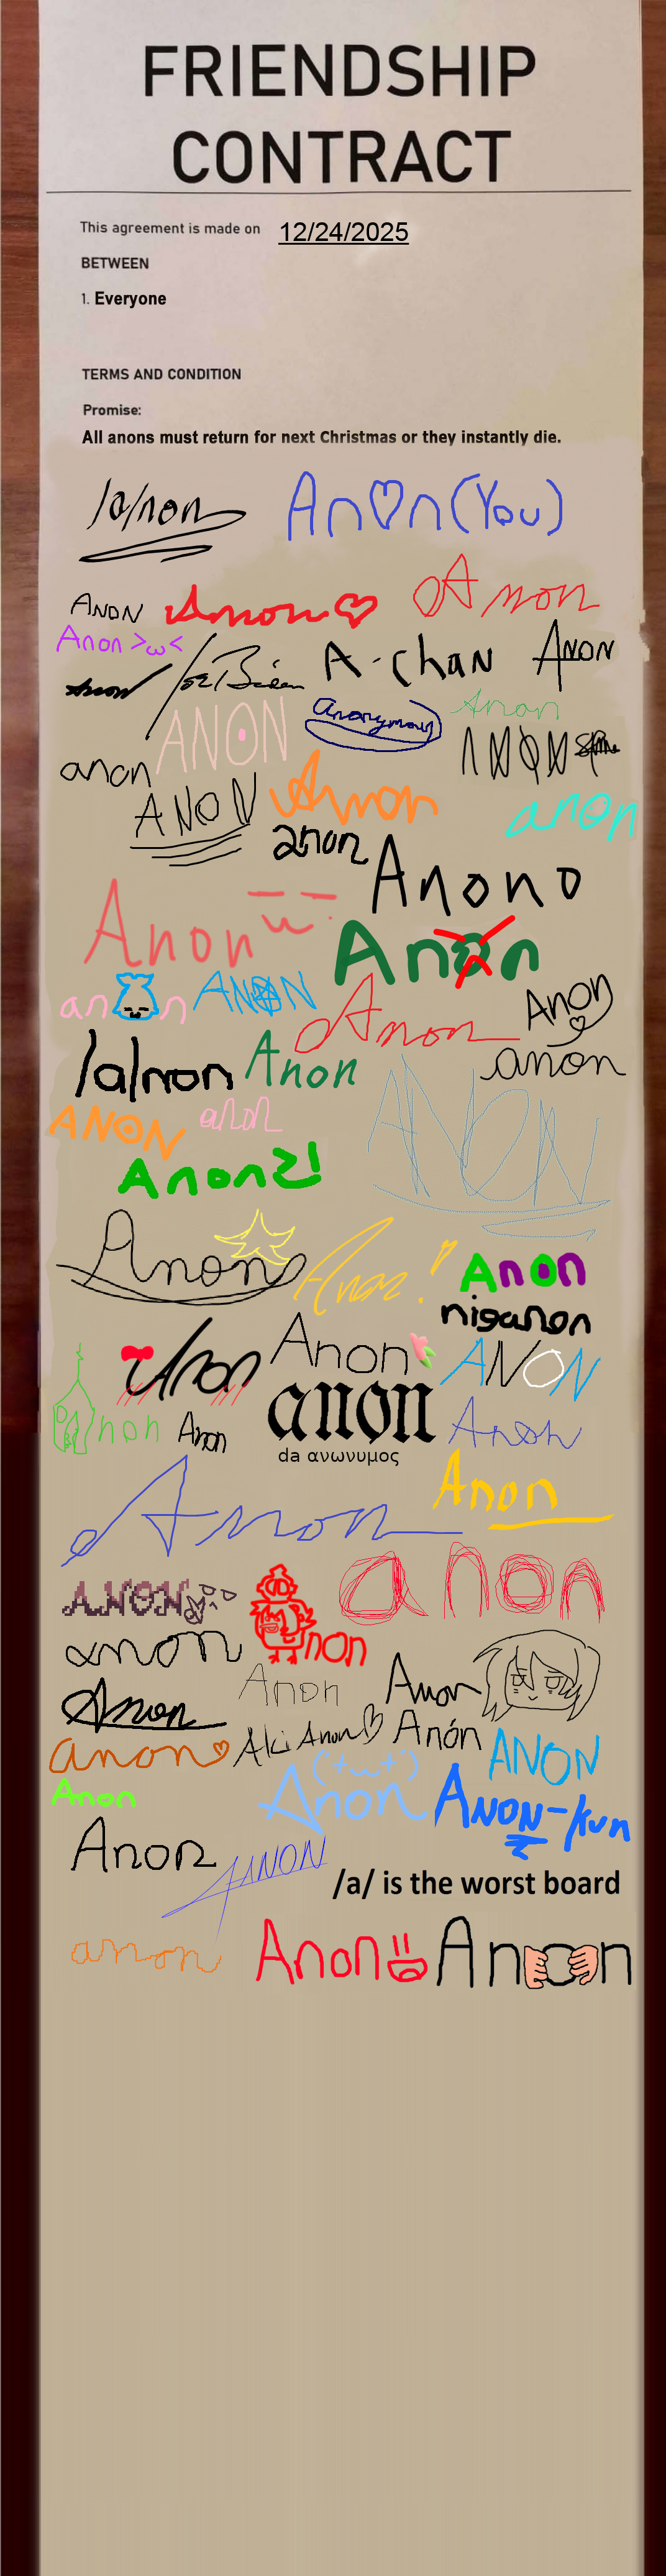 FRIENDSHIP
CONTRACT
This agreement is made on 12/24/2025
BETWEEN
1. Everyone
TERMS AND CONDITION
Promise:
All anons must return for next Christmas or they instantly die.
/a/non
An♡n (You)
ANON
Anon♡
Anon
Anon >ω<
Anon
Joe Biden
A-chan
ANON
ANON
Anonymous
Anon
anon
ANON
ANON
Anon
anon
anon
Anono
Anon
Anon
anon
ANON
Anon
Anon
/a/non
Anon
anon
ANON
anon
ANON
Anon2!
Anon
Anon!
Anon
niganon
Anon
Anon
ANON
Anon
Anon
anon
da ανωνυμος
Anon
Anon
Anon
ANON
anon
non
anon
Anon
Anon
Anon
Aki Anon♡
Anón
anon♡
ANON
Anon
Anon
('+ω+')
ANON-kun
Anon
ANON
/a/ is the worst board
anon
Anon
Anon